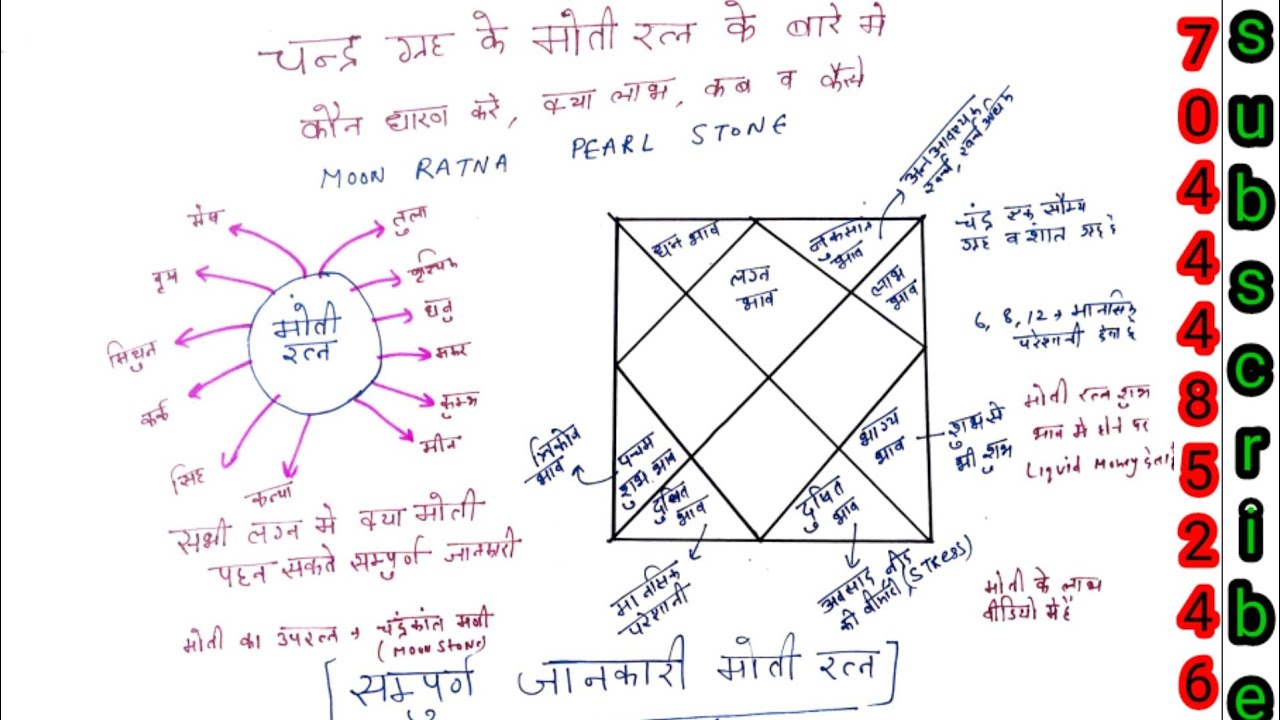 चन्द्र ग्रह के मोती रत्न के बारे मे
कौन धारण करे, क्या लाभ, कब व कैसे
MOON RATNA PEARL STONE
मेष
वृष
मिथुन
कर्क
सिंह
कन्या
तुला
वृश्चिक
धनु
मकर
कुम्भ
मीन
मोती
रत्न
सभी लग्न मे क्या मोती
पहन सकते सम्पुर्ण जानकारी
मोती का उपरत्न → चंद्रकांत मणी
(MOON STONE)
धन भाव
लग्न
भाव
नुकसान
भाव
अनावश्यक
खर्च, खर्च अधिक
लाभ
भाव
भाग्य
भाव
शुभ से
भी शुभ
दुषित
भाव
अवसाद नींद
की बीमारी (STRESS)
पंचम
शुभ भाव
त्रिकोण
भाव
दुषित
भाव
मानसिक
परेशानी
चंद्र एक सौम्य
ग्रह व शांत ग्रह है
6, 8, 12 → मानसिक
परेशानी देता है
मोती रत्न शुभ
भाव मे होने पर
Liquid Money देता है
मोती के लाभ
वीडियो मे है
[सम्पुर्ण जानकारी मोती रत्न]
7044485246
Subscribe